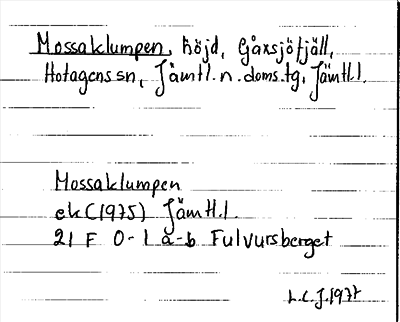 Mossaklumpen, höjd, Gåxsjöfjäll,
Hotagens sn, Jämtl. n. doms.tg, Jämtl.
Mossaklumpen
ek (1975) Jämtl.
21 F 0-1 a-b Fulvursberget
L.C.J. 1977